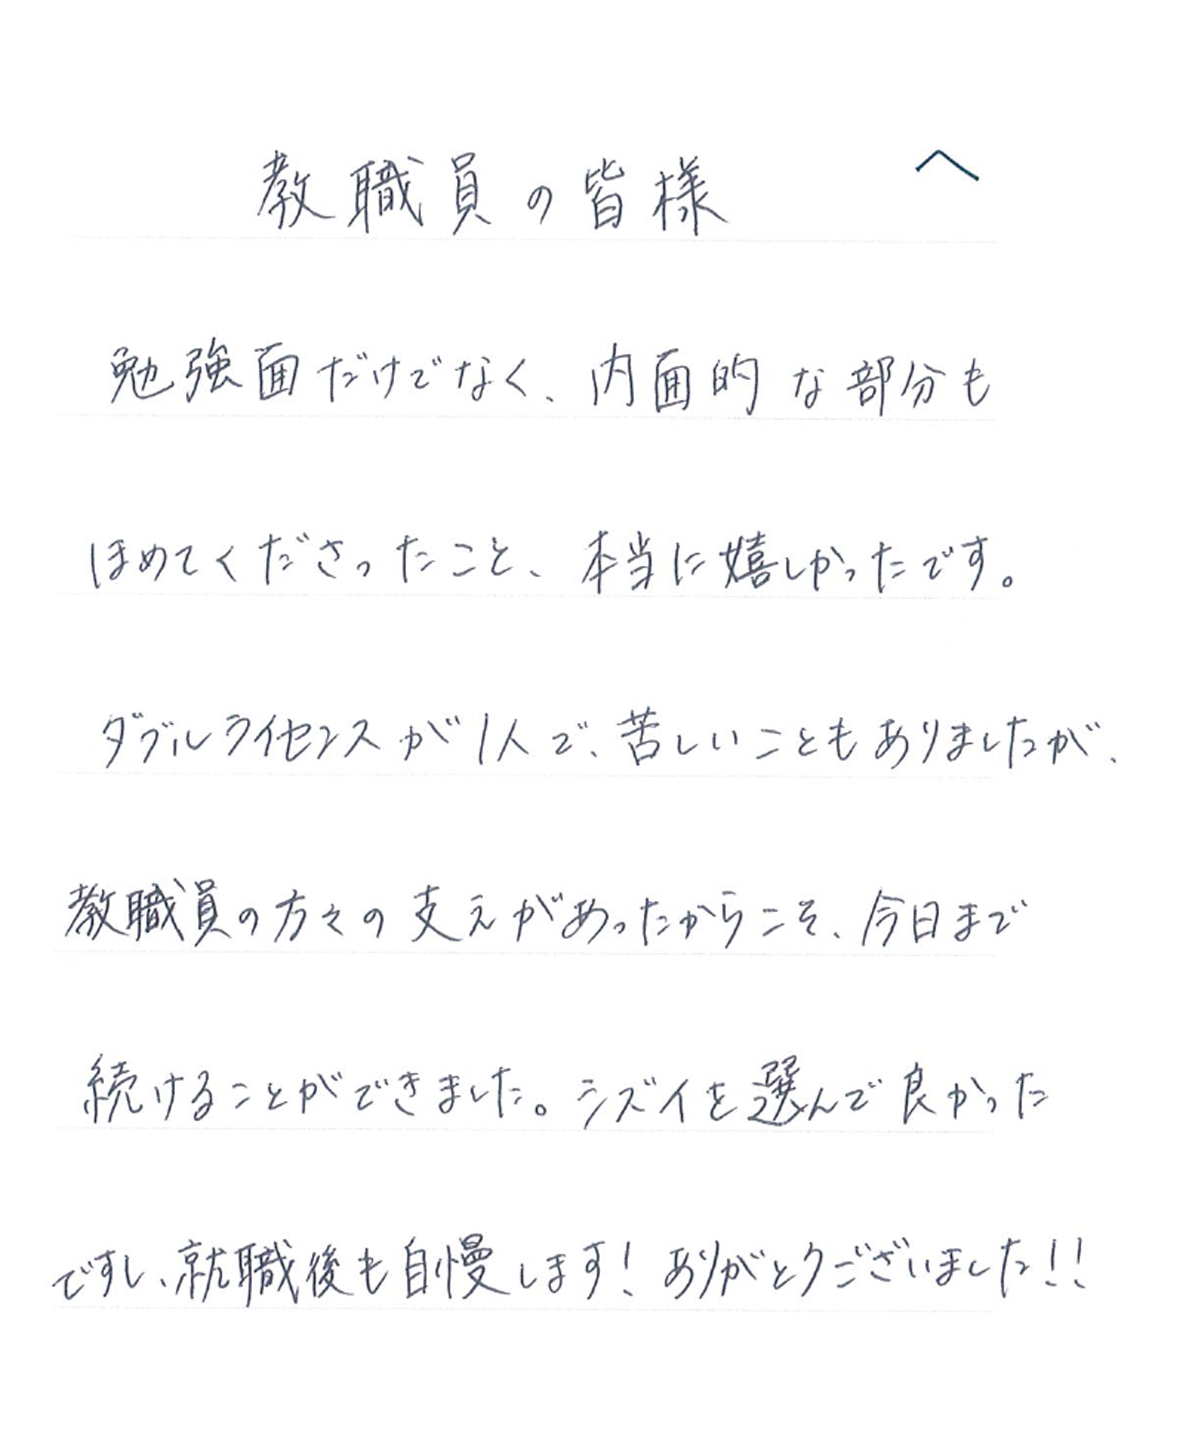 教職員の皆様 へ
勉強面だけでなく、内面的な部分も
ほめてくださったこと、本当に嬉しかったです。
ダブルライセンスが1人で、苦しいこともありましたが、
教職員の方々の支えがあったからこそ、今日まで
続けることができました。シズイを選んで良かった
ですし、就職後も自慢します！ありがとうございました！！